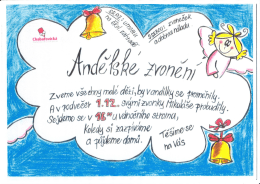 Andělské zvonění
Zveme všechny malé děti, by v andílky se proměnily.
A v podvečer 1.12. svými zvonky Mikuláše probudily.
Sejdeme se v 16 u vánočního stromu,
koledy si zazpíváme
a půjdeme domů.
Těšíme se
na Vás